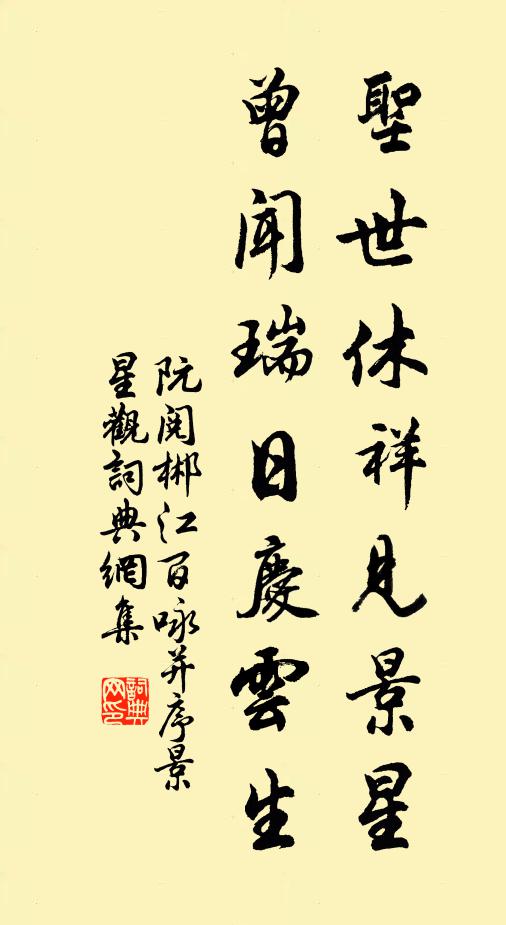 聖世休祥見景星
曾聞瑞日慶雲生
阮閱郴江百咏并序景
星觀詞典網集
詞典网印